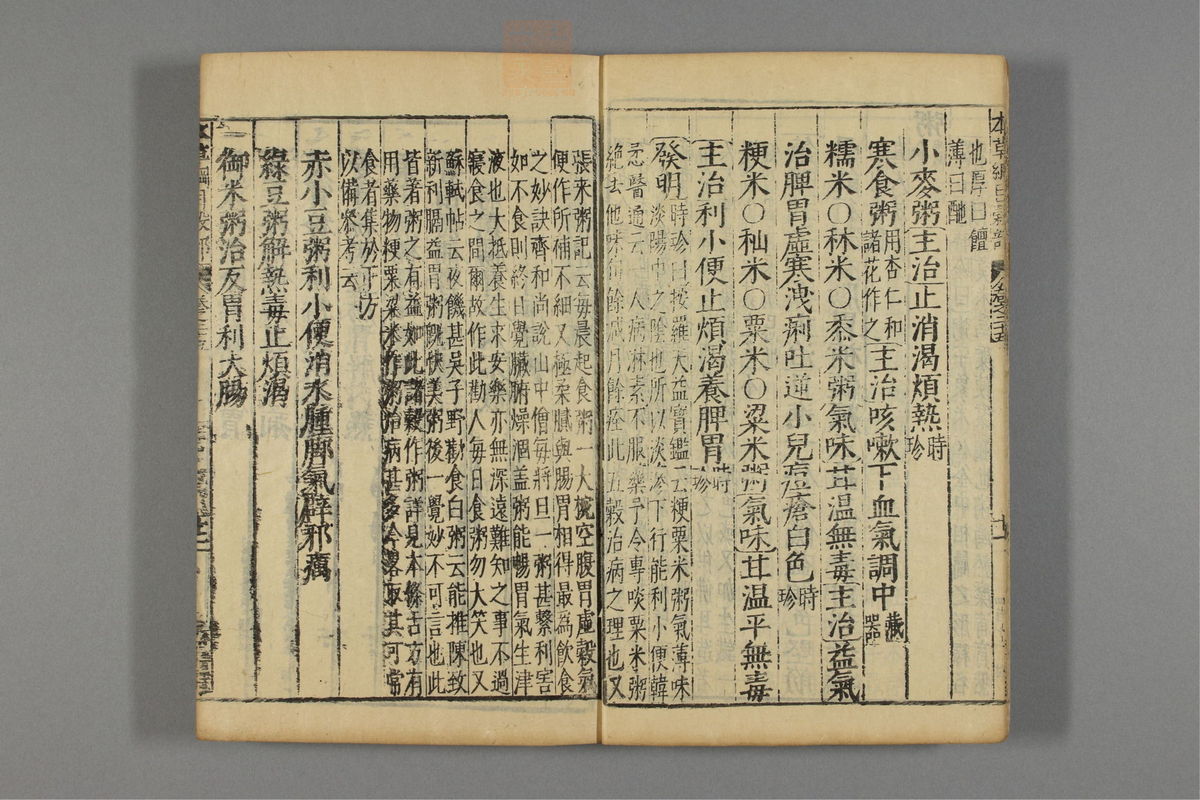 也厚曰饘
薄曰酏
小麥粥主治止消渴煩熱時珍
寒食粥用杏仁和諸花作之主治咳嗽下血氣調中藏器
糯米○秫米○黍米粥氣味甘温無毒主治益氣
治脾胃虛寒洩痢吐逆小兒痘瘡白色時珍
粳米○秈米○粟米○粱米粥氣味甘温平無毒
主治利小便止煩渴養脾胃時珍
發明時珍曰按羅天益寶鑑云粳粟米粥氣薄味
淡陽中之陰也所以淡滲下行能利小便韓
㤅醫通云一人病淋素不服藥予令專啖粟米粥
絶去他味旬餘減月餘痊此五穀治病之理也又
張耒粥記云每晨起食粥一大椀空腹胃虛穀氣
便作所補不細又極柔膩與腸胃相得最為飲食
之妙訣齊和尚說山中僧每將旦一粥甚繫利害
如不食則終日覺臟腑燥涸盖粥能暢胃氣生津
液也大抵養生求安樂亦無深遠難知之事不過
寢食之間爾故作此勸人每日食粥勿大笑也又
蘇軾帖云夜饑甚吳子野勸食白粥云能推陳致
新利膈益胃粥旣快美粥後一覺妙不可言也此
皆著粥之有益如此諸穀作粥詳見本條古方有
用藥物粳粟粱米作粥治病甚多今畧取其可常
食者集於下方
以備參考云
赤小豆粥利小便消水腫脚氣辟邪癘
綠豆粥解熱毒止煩渴
御米粥治反胃利大腸